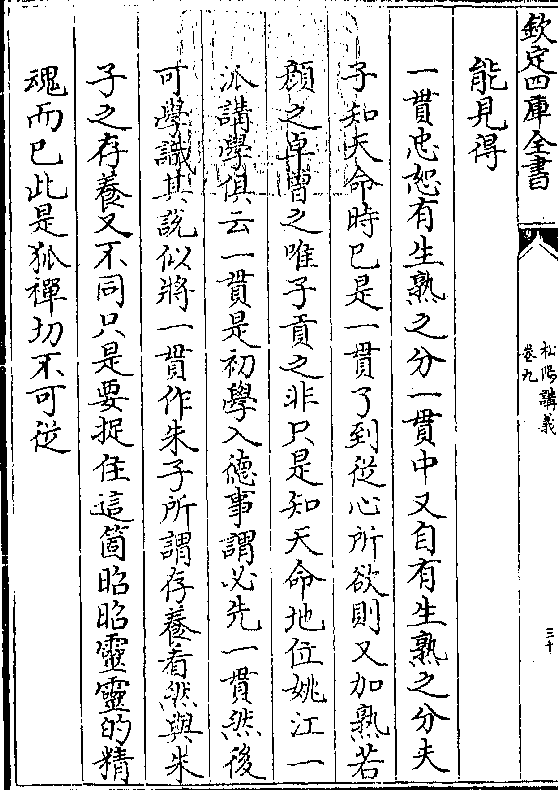 欽定四庫全書
松陽講義
卷九
三十
能見得
一貫忠恕有生熟之分一貫中又自有生熟之分夫
子知天命時已是一貫了到從心所欲則又加熟若
顔之卓曽之唯子貢之非只是知天命地位姚江一
派講學俱云一貫是初學入德事謂必先一貫然後
可學識其説似將一貫作朱子所謂存養看然與朱
子之存養又不同只是要捉住這箇昭昭靈靈的精
魂而已此是狐禪切不可從